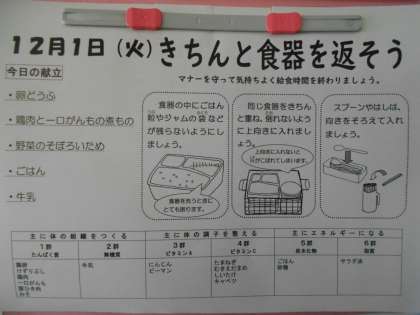 12月1日(火)きちんと食器を返そう
マナーを守って気持ちよく給食時間を終わりましょう。
今日の献立
・卵どうふ
・鶏肉と一口がんもの煮もの
・野菜のそぼろいため
・ごはん
・牛乳
食器の中にごはん
粒やジャムの袋など
が残らないようにし
ましょう。
食器を洗うときに
とても困ります。
同じ食器をきちん
と重ね、倒れないよう
に上向きに入れまし
ょう。
上向きに入れないと
はがこぼれてしまいます。
スプーンやはしは、
向きをそろえて入れ
ましょう。
主に体の組織をつくる
主に体の調子を整える
主にエネルギーになる
1群
たんぱく質
2群
無機質
3群
ビタミンA
4群
ビタミンC
5群
炭水化物
6群
脂質
鶏卵
けずりぶし
鶏肉
一口がんも
豚ひき肉
みそ
牛乳
にんじん
ピーマン
たまねぎ
むきえだまめ
しいたけ
キャベツ
ごはん
砂糖
サラダ油